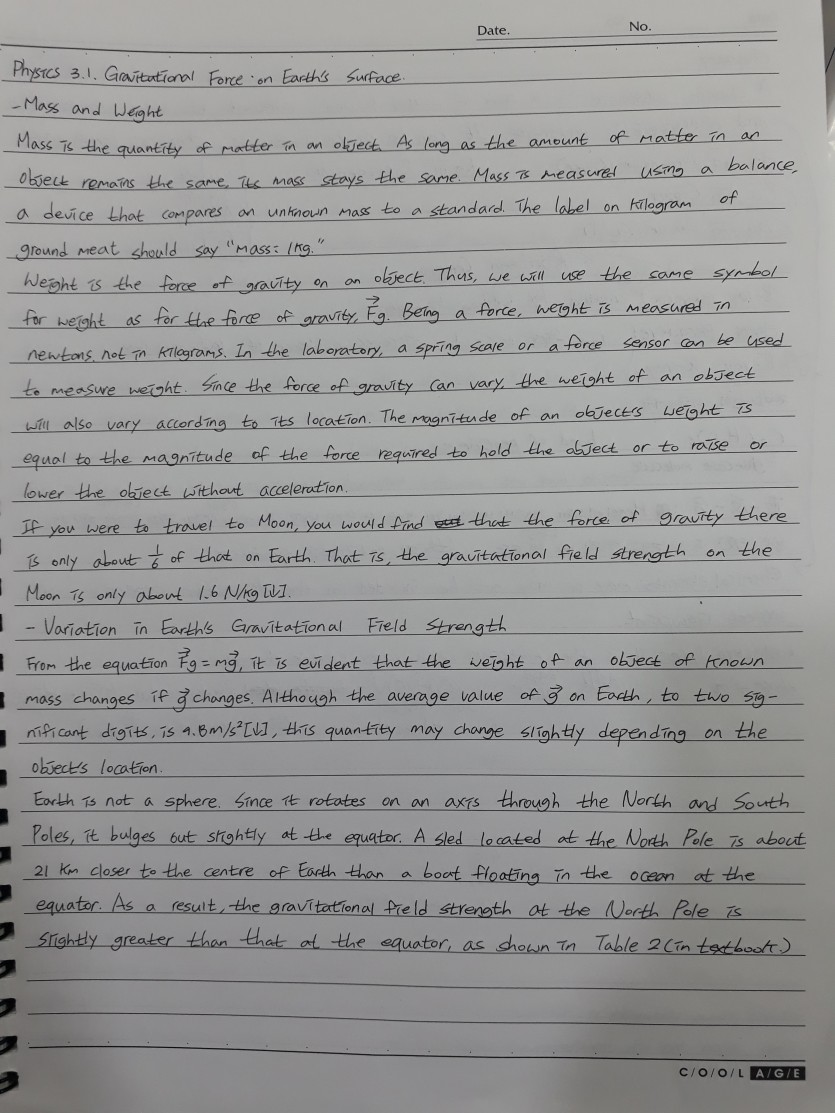 Date.
No.
Physics 3.1. Gravitational Force on Earth's Surface.
- Mass and Weight
Mass is the quantity of matter in an object. As long as the amount of matter in an
object remains the same, its mass stays the same. Mass is measured using a balance,
a device that compares an unknown mass to a standard. The label on kilogram of
ground meat should say "Mass: 1kg."
Weight is the force of gravity on an object. Thus, we will use the same symbol
for weight as for the force of gravity, F⃗g. Being a force, weight is measured in
newtons, not in kilograms. In the laboratory, a spring scale or a force sensor can be used
to measure weight. Since the force of gravity can vary, the weight of an object
will also vary according to its location. The magnitude of an object's weight is
equal to the magnitude of the force required to hold the object or to raise or
lower the object without acceleration.
If you were to travel to Moon, you would find that the force of gravity there
is only about 1/6 of that on Earth. That is, the gravitational field strength on the
Moon is only about 1.6 N/kg [↓].
- Variation in Earth's Gravitational Field Strength
From the equation F⃗g = mg⃗, it is evident that the weight of an object of known
mass changes if g⃗ changes. Although the average value of g⃗ on Earth, to two sig-
nificant digits, is 9.8m/s² [↓], this quantity may change slightly depending on the
object's location.
Earth is not a sphere. Since it rotates on an axis through the North and South
Poles, it bulges out slightly at the equator. A sled located at the North Pole is about
21 km closer to the centre of Earth than a boat floating in the ocean at the
equator. As a result, the gravitational field strength at the North Pole is
slightly greater than that at the equator, as shown in Table 2 (in textbook)
C/O/O/L A/G/E